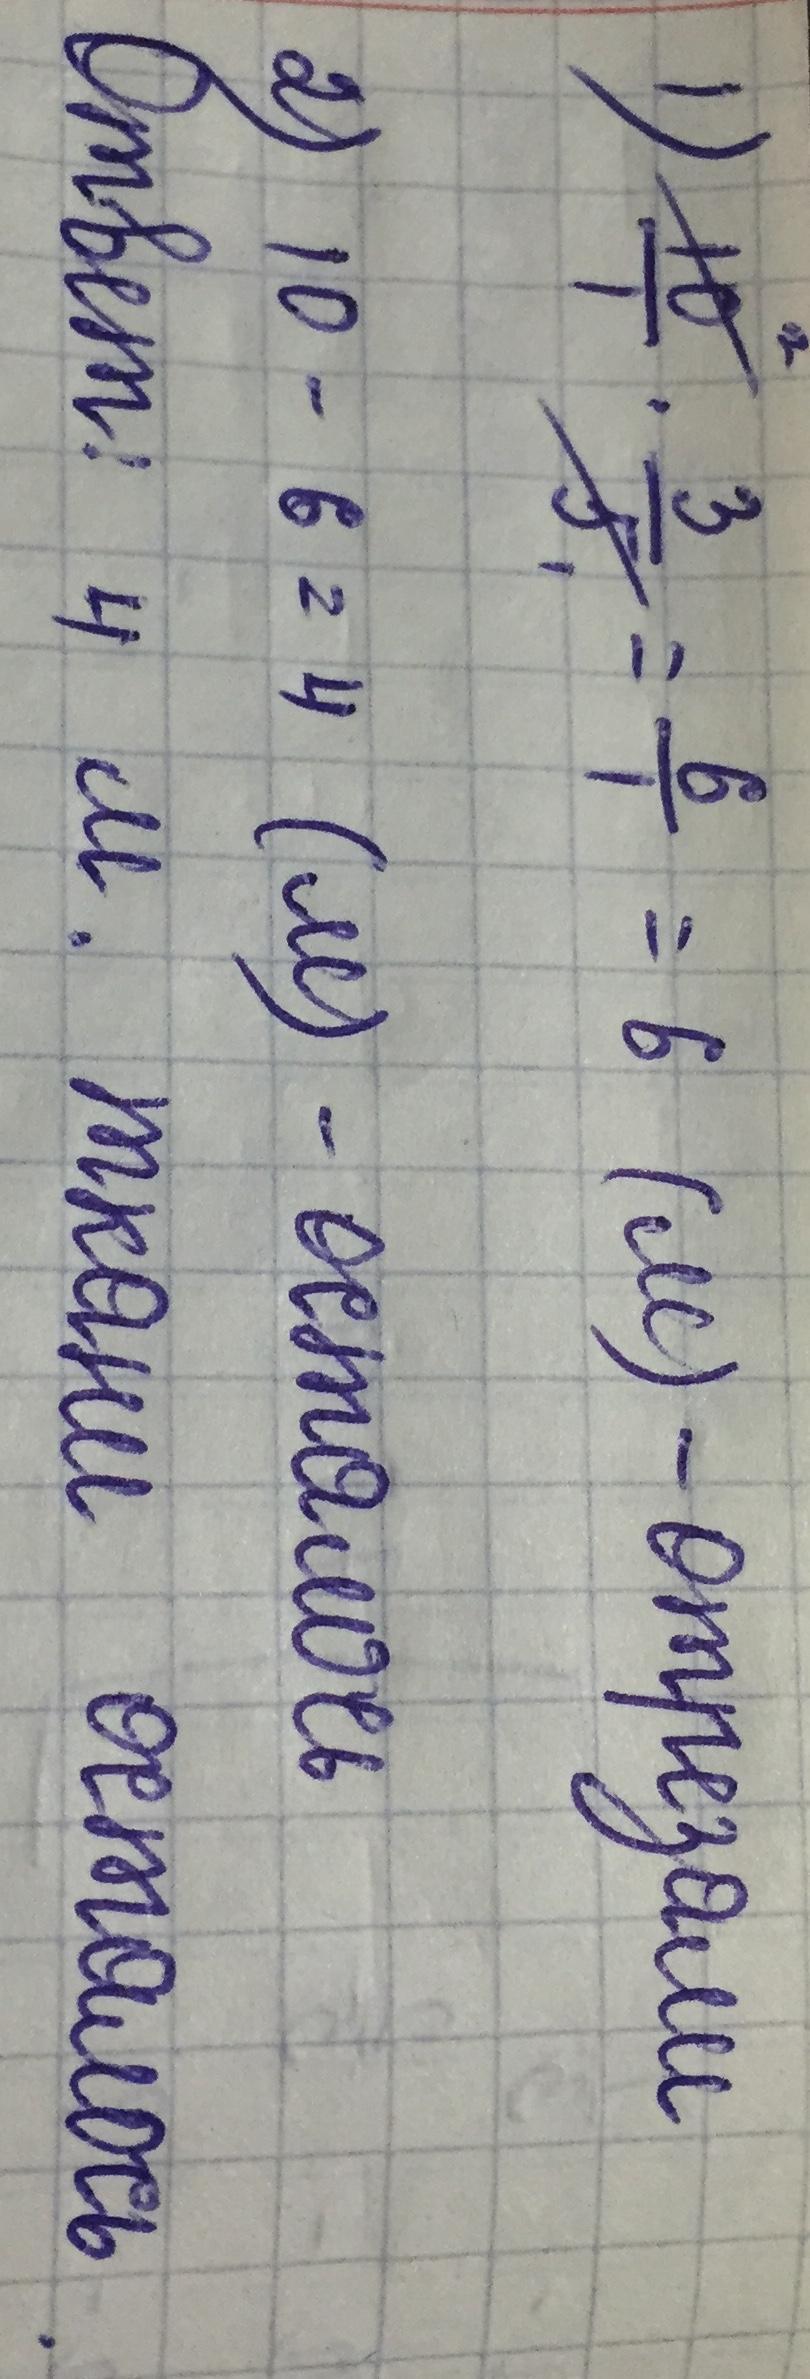 1) 10/1 · 3/5 = 6/1 = 6 (м) - отрезали
2) 10 - 6 = 4 (м) - осталось
Ответ: 4 м. ткани осталось.